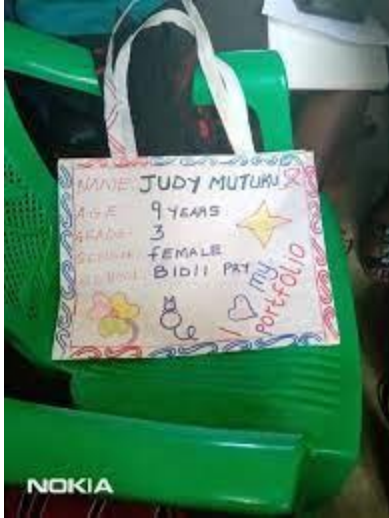 NAME: JUDY MUTUKU
AGE 9 YEARS
GRADE: 3
FEMALE
SCHOOL: BIDII PRY
I ♡ my
PORTFOLIO
NOKIA